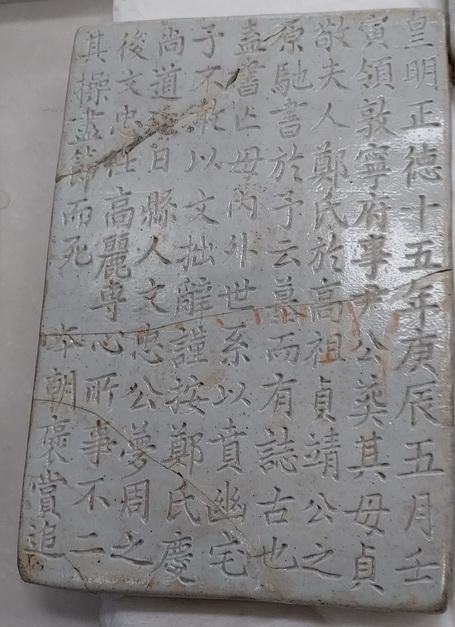 皇明正德十五年庚辰五月壬
寅領敦寧府事尹公葬其母貞
敬夫人鄭氏於高祖貞靖公之
原馳書於予云墓而有誌古也
盍書亾母內外世系以賁幽宅
予不敢以文拙辭謹按鄭氏慶
尚道日縣人文忠公夢周之
後文忠仕高麗專心所事不二
其操盡節而死 本朝褒賞追